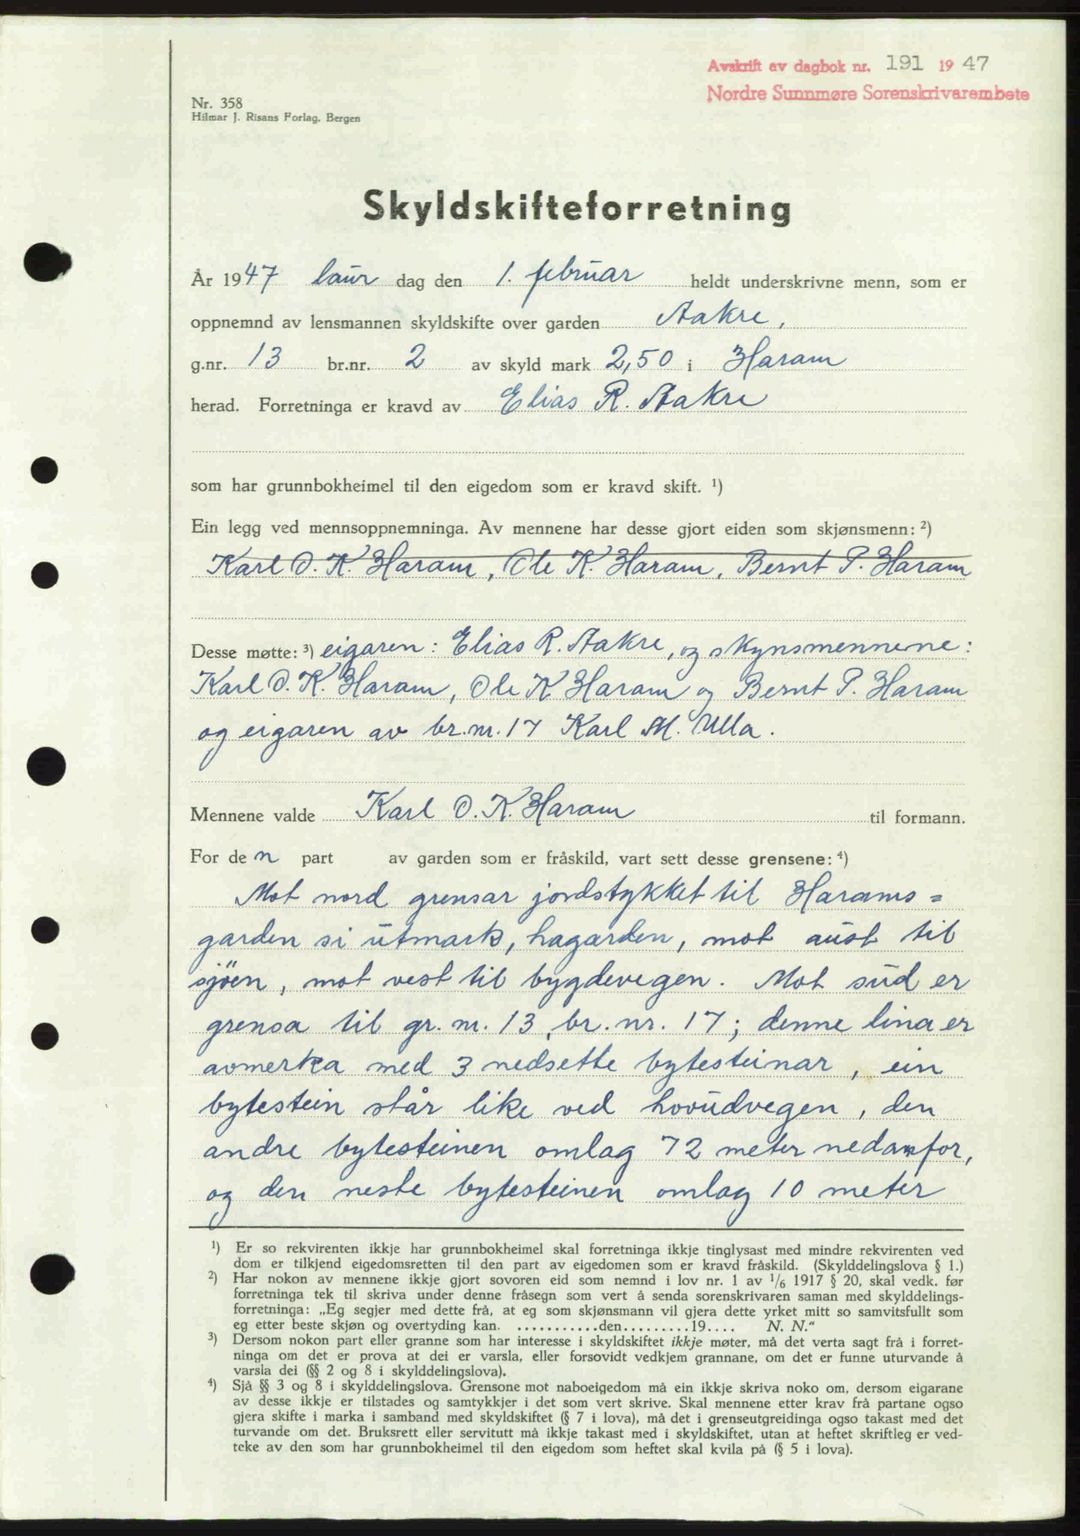 Avskrift av dagbok nr. 191 19 47
Nordre Sunnmøre Sorenskrivarembete
Nr. 358
Hilmar J. Risans Forlag. Bergen
Skyldskifteforretning
År 1947 laur dag den 1. februar heldt underskrivne menn, som er
oppnemnd av lensmannen skyldskifte over garden Aakre,
g.nr. 13 br.nr. 2 av skyld mark 2,50 i Haram
herad. Forretninga er kravd av Elias R. Aakre
som har grunnbokheimel til den eigedom som er kravd skift. ¹)
Ein legg ved mennsoppnemninga. Av mennene har desse gjort eiden som skjønsmenn: ²)
Karl O. K. Haram, Ole K. Haram, Bernt P. Haram
Desse møtte: ³) eigaren: Elias R. Aakre, og skynsmennene:
Karl O. K. Haram, Ole K Haram og Bernt P. Haram
og eigaren av br.nr. 17 Karl M. Ulla.
Mennene valde Karl O. K. Haram til formann.
For den part av garden som er fråskild, vart sett desse grensene: ⁴)
Mot nord grensar jordstykket til Harams=
garden si utmark, hagarden, mot aust til
sjöen, mot vest til bygdevegen. Mot sud er
grensa til gr. nr. 13, br. nr. 17; denne lina er
avmerka med 3 nedsette bytesteinar, ein
bytestein står like ved hovudvegen, den
andre bytesteinen omlag 72 meter nedanfor,
og den neste bytesteinen omlag 10 meter
¹) Er so rekvirenten ikkje har grunnbokheimel skal forretninga ikkje tinglysast med mindre rekvirenten ved
dom er tilkjend eigedomsretten til den part av eigedomen som er kravd fråskild. (Skylddelingslova § 1.)
²) Har nokon av mennene ikkje gjort sovoren eid som nemnd i lov nr. 1 av 1/6 1917 § 20, skal vedk. før
forretninga tek til skriva under denne fråsegn som vert å senda sorenskrivaren saman med skylddelings-
forretninga: „Eg segjer med dette frå, at eg som skjønsmann vil gjera dette yrket mitt so samvitsfullt som
eg etter beste skjøn og overtyding kan. ...........den.........19.... N. N.“
³) Dersom nokon part eller granne som har interesse i skyldskiftet ikkje møter, må det verta sagt frå i forret-
ninga om det er prova at dei er varsla, eller forsovidt vedkjem grannane, om det er funne uturvande å
varsla dei (§§ 2 og 8 i skylddelingslova).
⁴) Sjå §§ 3 og 8 i skylddelingslova. Grensone mot naboeigedom må ein ikkje skriva noko om, dersom eigarane
av desse ikkje er tilstades og samtykkjer i det som vert skrive. Skal mennene etter krav frå partane ogso
gjera skifte i marka i samband med skyldskiftet (§ 7 i lova), må det i grenseutgreidinga ogso takast med det
turvande om det. Bruksrett eller servitutt må ikkje takast med i skyldskiftet, utan at heftet skriftleg er ved-
teke av den som har grunnbokheimel til den eigedom som heftet skal kvila på (§ 5 i lova).